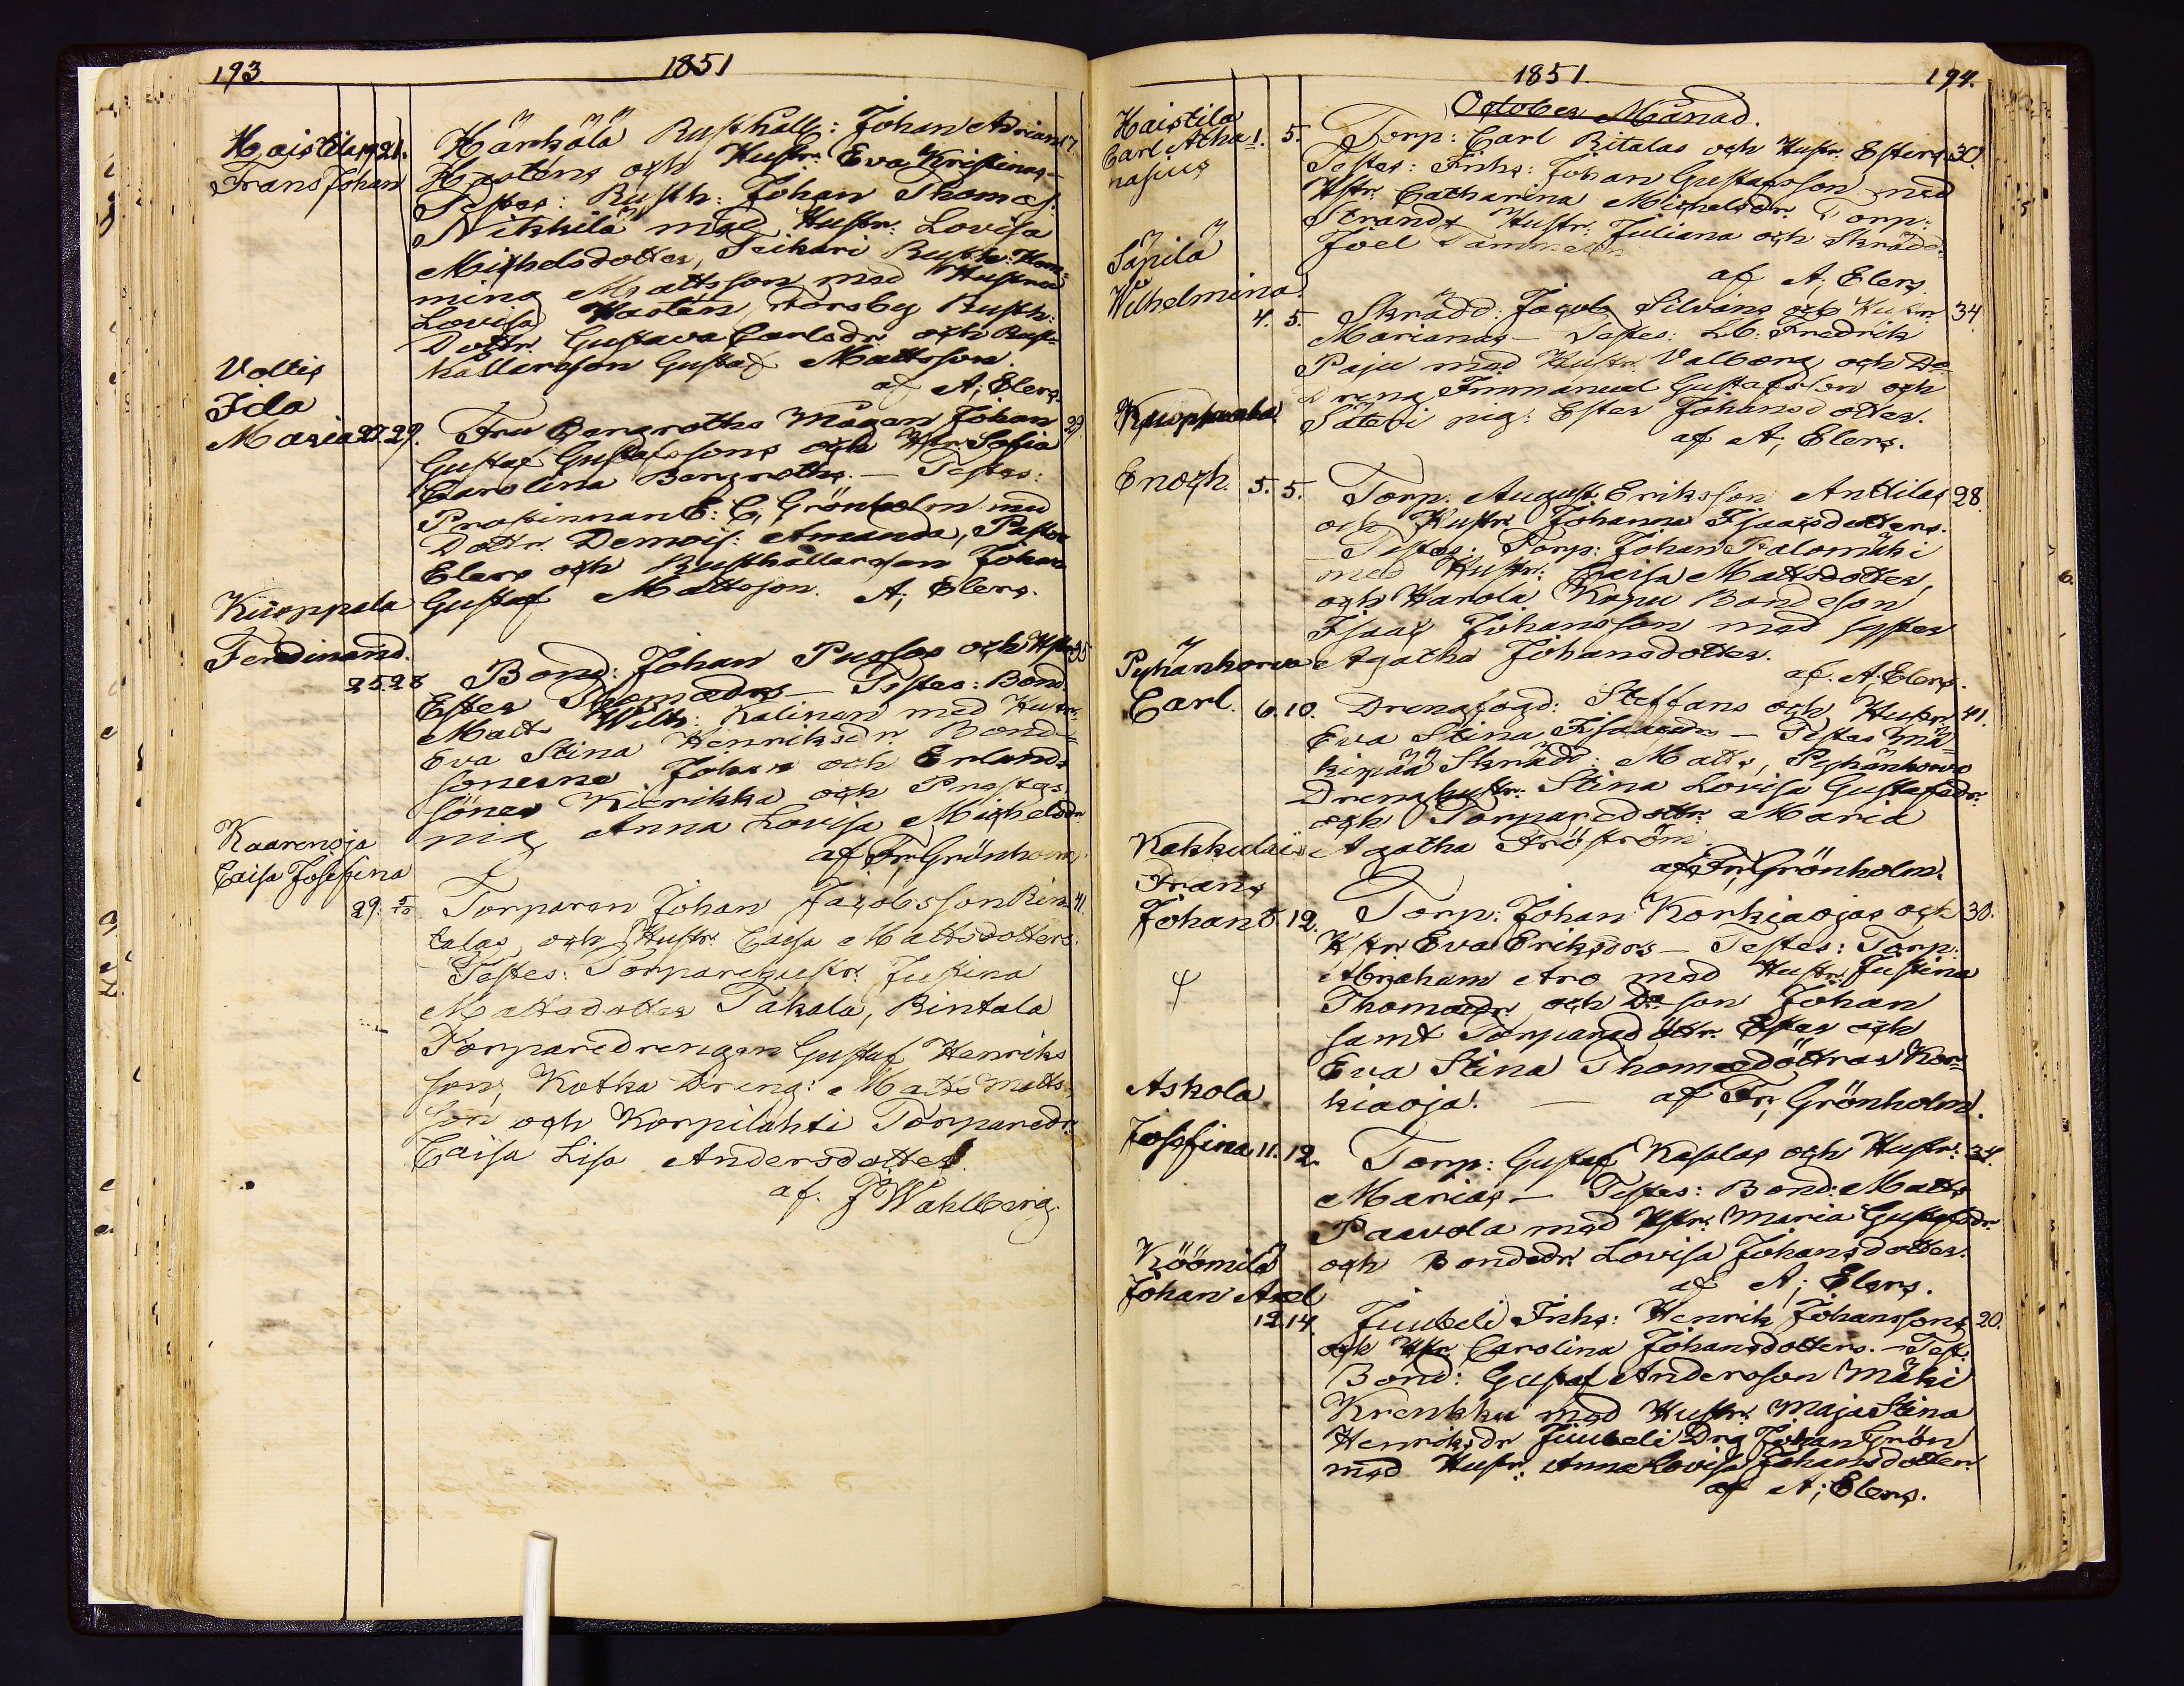 193.
1851
Haistila 19. 21. Hänkälä Rusthåll: Johan Adrian 27.
Frans Johan Hasténs och Hustr: Eva Kristinas—
Testes: Rusth: Johan Thomas:
Nikkilä med Hustr: Lovisa
Michelsdotter, Seikari Rusth: Hen=
ming Mattsson med Hustru
Lovisa Hastén, Torsby Rusth:
Dottr: Gustava Carlsdr och Rust=
hållareson Gustaf Mattsson.
af A; Elers.
Voltis
Ida
Maria 27. 29. Fru Bergroths Mågen Johan 29.
Gustaf Gustafssons och Hstr Sofia
Carolina Bergroths.— Testes:
Prostinnan E: C, Grönholm med
Dottr. Demois: Amanda, Pastor
Elers och Rusthållarson Johan
Gustaf Mattsson. A; Elers.
Kuoppala
Ferdinand.
25. 28 Bond: Johan Pugsas och Hstr 35
Ester Thomædrs— Testes: Bond
Matts Wilh: Kalinen med Hustr:
Eva Stina Henriksdr Bond=
sonerne Johan och Erland
söner Kierikka och Prostas
pig Anna Lovisa Michelsdr
af Fr; Grönholm
Kaarenoja
Caisa Josefina
29. 5/10 Torparen Johan Jacobsson Rin 41.
talas, och Hustr: Caisa Mattsdotters.
Testes: Torparehustr: Justina
Mattsdotter Takala, Rintala
Torparedrengen Gustaf Henriks
son, Kotka Dreng: Matts Matts=
son och Korpilahti Torparedr:
Caisa Lisa Andersdotter.
af. J Wahlberg.
1851.
194.
October Månad.
Haistila
Carl Atha 1. 5. Torp: Carl Ritalas och Hustr. Esters 30.
nasius Testes: Inhs: Johan Gustafsson med
Hstr: Catharina Michelsdr. Torp:
Strands Hustr: Juliana och Skrädd:
Joel Tammelin
af A; Elers.
Säpilä
Wilhelmina
4. 5. Skrädd: Jacob Silvéns och Hustr 34.
Marianas— Testes: Lb: Fredrik
Paju med Hustr: Valborg och Do
dreng Immanuel Gustafsson och
Säteri pig: Ester Johansdotter.
af A; Elers.
Kuoppaala
Enoch. 5. 5. Torp: August Eriksson Anttilas 28.
och Hustr: Johanna Isaacsdotters.
— Testes: Torp: Johan Palomäki
med Hustr: Caisa Mattsdotter,
och Harola Knpu Bondeson
Isaac Johansson med syster
Agatha Johansdotter.
af. A; Elers.
Pyhänkorva
Carl. 6. 10. Drengfogd: Steffans och Hustr: 41.
Eva Stina Isaacsdr— Testes Mä=
kipää Skrädd: Matts, Pyhänkorva
Drenghustr: Stina Lovisa Gustafsdr:
och Torparedottr: Maria
Agatha Fröström.
af Fr; Grönholm.
Kakkulais
Frans
Johan 8. 12. Torp: Johan Korkiaojas och 30.
Hstr: Eva Eriksdrs— Testes: Torp:
Abraham Aro med Hustr: Justina
Thomædr och Do son Johan
samt Torparedöttr: Ester och
Eva Stina Thomædöttrar Kor=
kiaoja. — af Fr; Grönholm.
Askola
Josefina 11. 12. Torp: Gustaf Kasalas och Hustr: 34.
Marias— Testes: Bond: Matts
Paavola med Hstr: Maria Gustafsdr:
och Bondedr: Lovisa Johansdotter.
af A; Elers.
Köömilä
Johan Axel
12. 14. Juubeli Inhs: Henrik Johanssons 20.
och Hstr: Carolina Johansdotters.— Test:
Bond: Gustaf Andersson Mäki
Krenkku med Hustr: Maja Stina
Henriksdr Juubeli Drg Johan Grön
med Hustr: Anna Lovisa Johansdotter
af A; Elers.